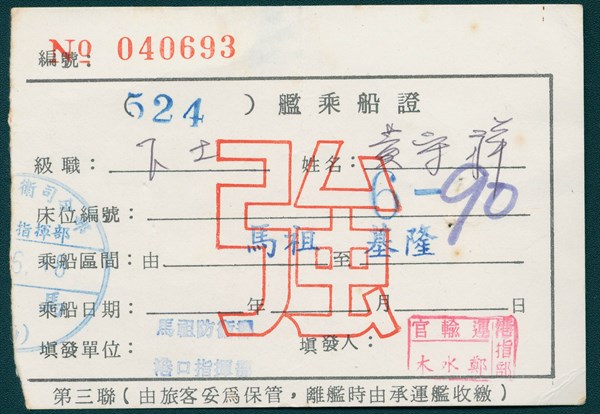 編號: № 040693
(524) 艦乘船證
級職: 下士 姓名: 黃守祥
床位編號: 6-90
乘船區間: 由 馬祖 至 基隆
乘船日期: 年 月 日
填發單位: 馬祖防衛部 港口指揮部 填發人:
港指部
運輸官
鄭水木
強
衛司令
指揮部
馬
第三聯(由旅客妥爲保管,離艦時由承運艦收繳)